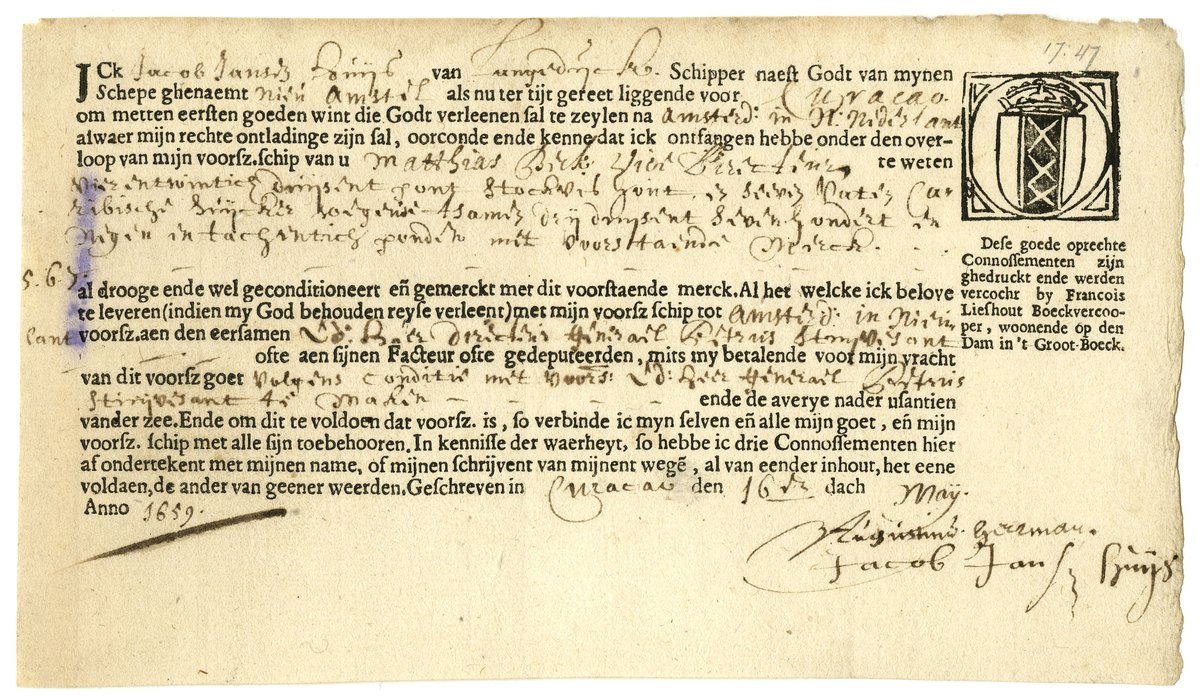 17:47
ICk Jacob Jansz Huijs van Langedijck. Schipper naest Godt van mynen
Schepe ghenaemt Nieu Amstel als nu ter tijt gereet liggende voor Curacao.
om metten eersten goeden wint die Godt verleenen sal te zeylen na Amsterd: in N: Niderlant
alwaer mijn rechte ontladinge zijn sal, oorconde ende kenne dat ick ontfangen hebbe onder den over-
loop van mijn voorsz. schip van u Matthias Beck Vice Directeur te weten
Vierentwintich duijsent pont Stockvis hout, en seven Vaten Car
ribische suijcker wegende tsamen drij duijsent seven hondert en
Negen in tachentich ponden met Voorstaende Merck.
5.6.7.
al drooge ende wel geconditioneert eñ gemerckt met dit voorstaende merck. Al het welcke ick belove
te leveren (indien my God behouden reyse verleent) met mijn voorsz schip tot Amsterd: in Nieu
lant voorsz. aen den eersamen Ed: Heer Directeur Generael Petrus Stuyvesant
ofte aen sijnen Facteur ofte gedeputeerden, mits my betalende voor mijn vracht
van dit voorsz goet Volgens Conditie met Voors: Ed: Heer Generael Petrus
Stuyvesant te Maken ende de averye nader usantien
vander zee. Ende om dit te voldoen dat voorsz. is, so verbinde ic myn selven eñ alle mijn goet, eñ mijn
voorsz. schip met alle sijn toebehooren. In kennisse der waerheyt, so hebbe ic drie Connossementen hier
af ondertekent met mijnen name, of mijnen schrijvent van mijnent wegẽ, al van eender inhout, het eene
voldaen, de ander van geener weerden. Geschreven in Curacao den 16en dach May.
Anno 1659.
Augustine Heerman.
Jacob Jansz Huijs
Dese goede oprechte
Connossementen zijn
ghedruckt ende werden
vercocht by Francois
Lieshout Boeckvercoo-
per, woonende op den
Dam in 't Groot-Boeck.